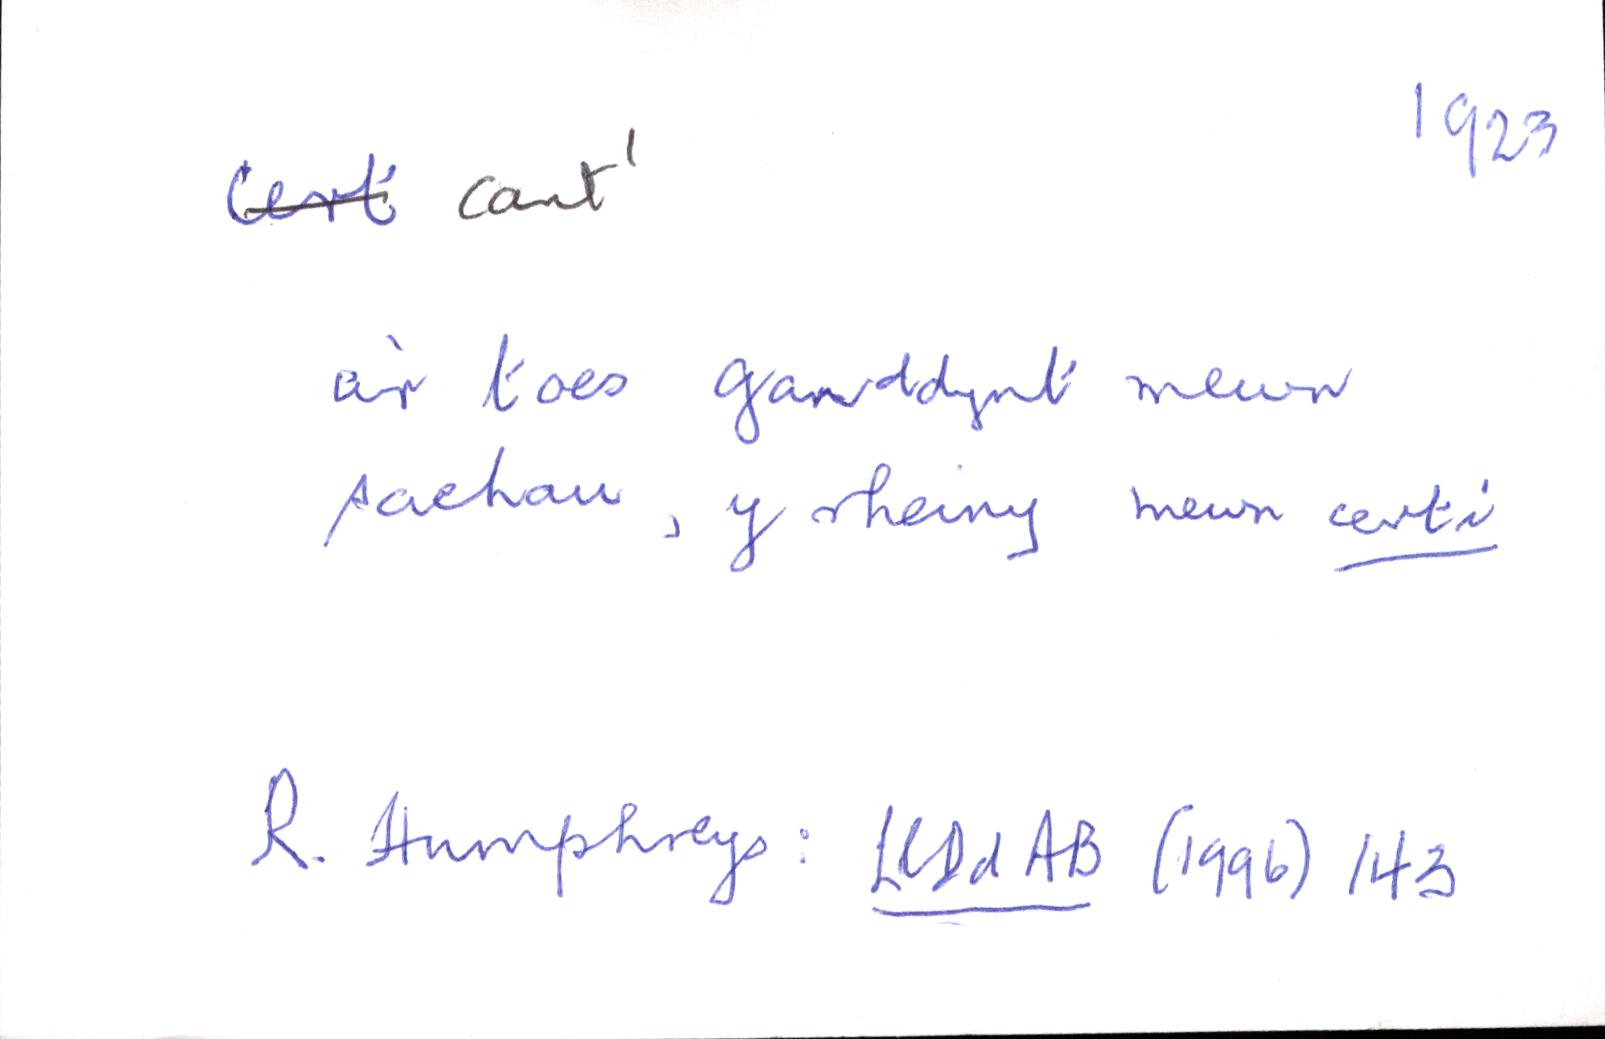 1923
Cert cart¹
a'r toes ganddynt mewn
sachau, y rheiny mewn certi
R. Humphreys: LlDdAB (1996) 143